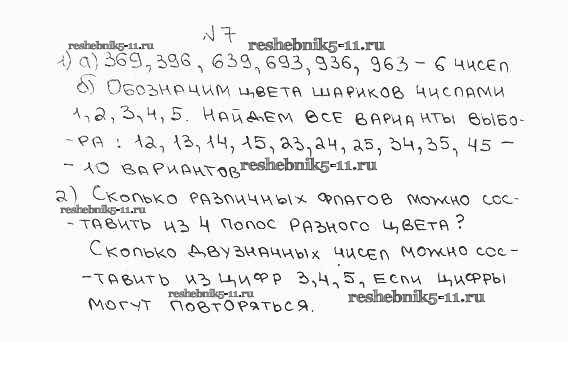 №7
reshebnik5-11.ru reshebnik5-11.ru
1) а) 369, 396, 639, 693, 936, 963 – 6 чисел
б) Обозначим цвета шариков числами
1, 2, 3, 4, 5. Найдем все варианты выбо-
-ра : 12, 13, 14, 15, 23, 24, 25, 34, 35, 45 –
– 10 вариантов reshebnik5-11.ru
2) Сколько различных флагов можно сос-
reshebnik5-11.ru
-тавить из 4 полос разного цвета?
Сколько двузначных чисел можно сос-
-тавить из цифр 3, 4, 5, если цифры
reshebnik5-11.ru reshebnik5-11.ru
могут повторяться.